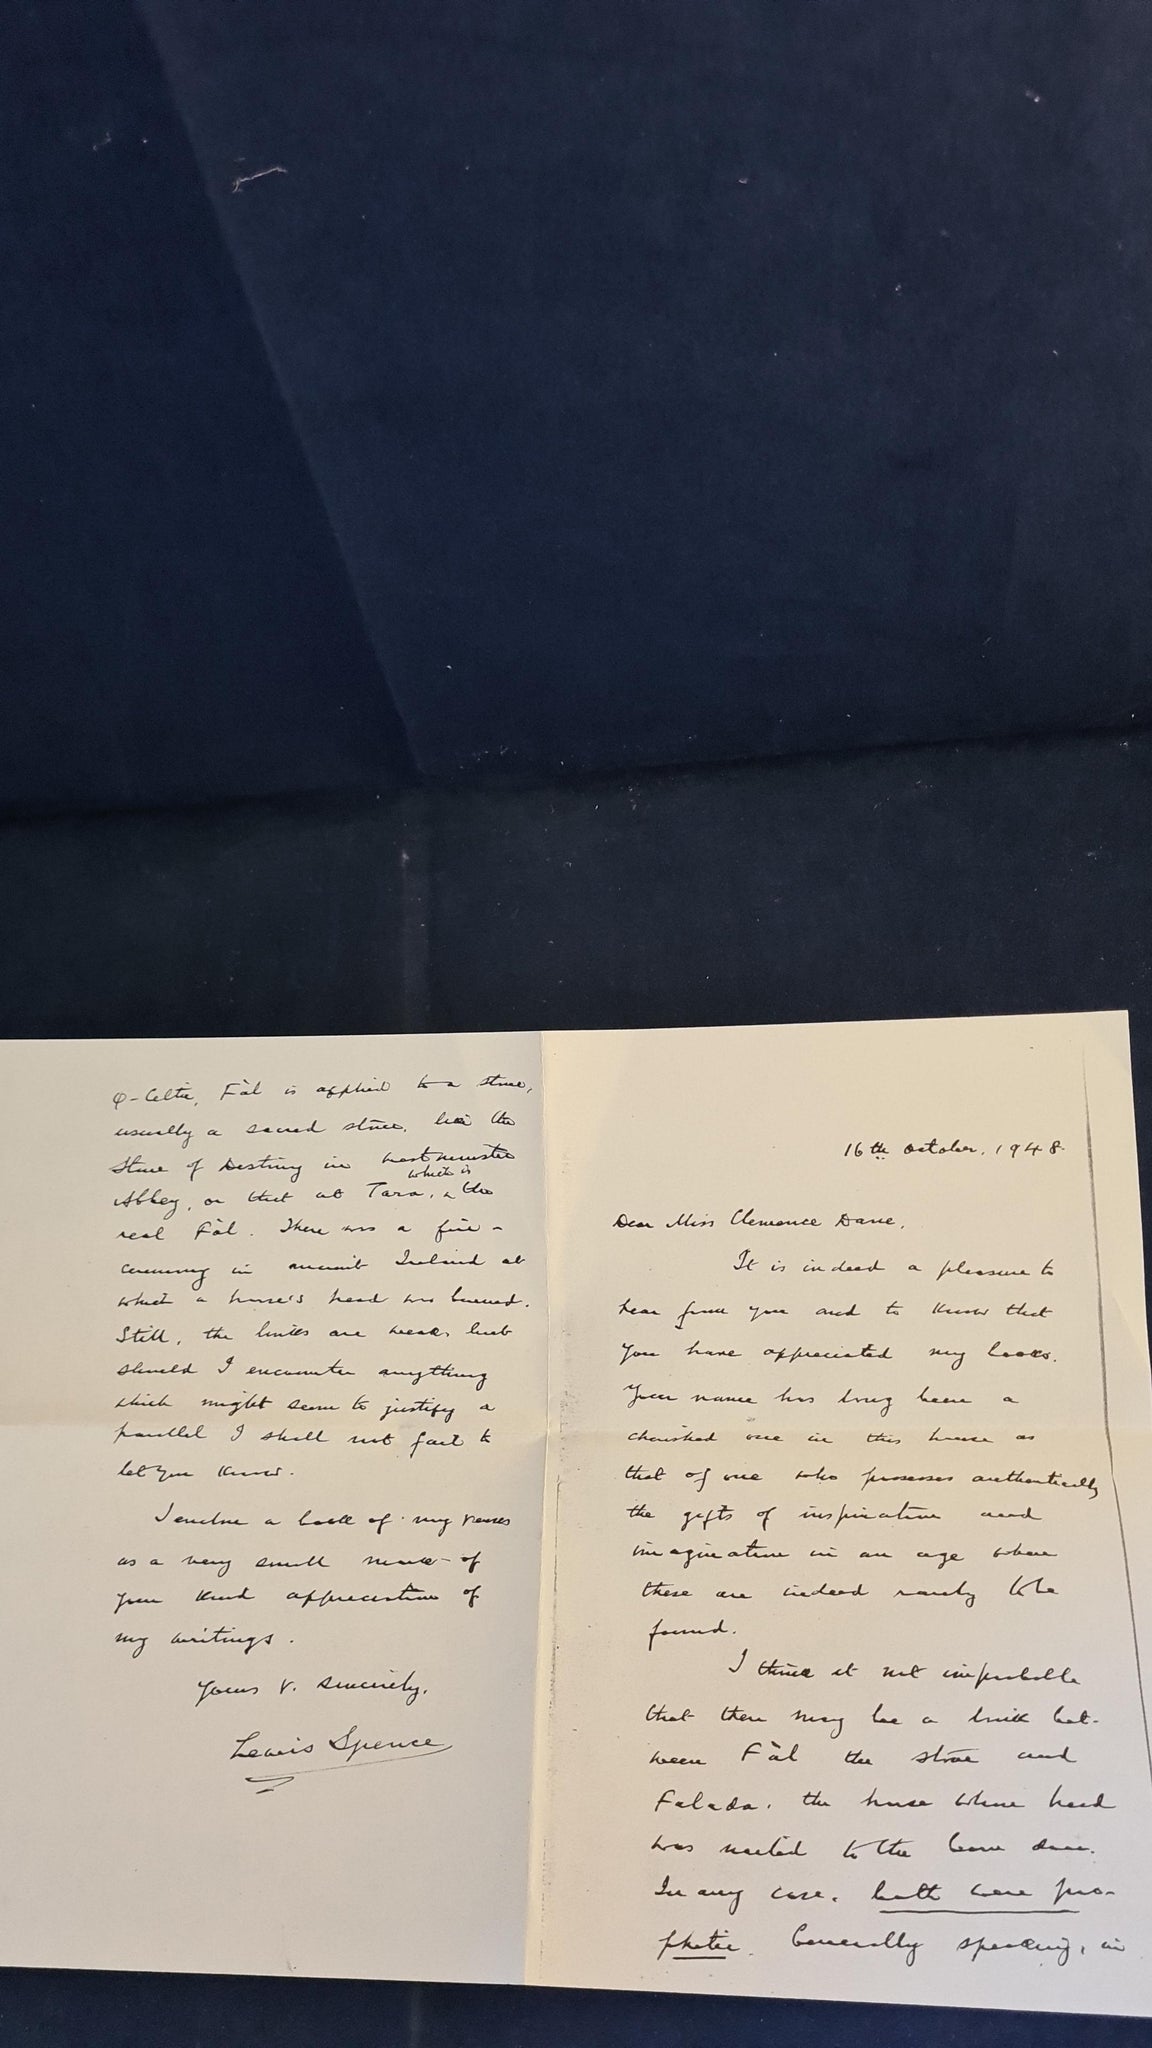 16th October, 1948.
Dear Miss Clemence Dane,
It is indeed a pleasure to
hear from you and to know that
you have appreciated my books.
Your name has long been a
cherished one in this house as
that of one who possesses authentically
the gifts of inspiration and
imagination in an age where
these are indeed rarely to be
found.
I think it not improbable
that there may be a link bet-
ween Fàl the stone and
Falada, the horse whose head
was nailed to the barn door.
In any case, both were pro-
phetic. Generally speaking, in
Q-Celtic, Fàl is applied to a stone,
usually a sacred stone, like the
Stone of Destiny in Westminster
Abbey, or that at Tara, which is the
real Fàl. There was a fire-
ceremony in ancient Ireland at
which a horse's head was burned.
Still, the links are weak, but
should I encounter anything
which might seem to justify a
parallel I shall not fail to
let you know.
I enclose a book of my verses
as a very small mark of
your kind appreciation of
my writings.
Yours v. sincerely,
Lewis Spence